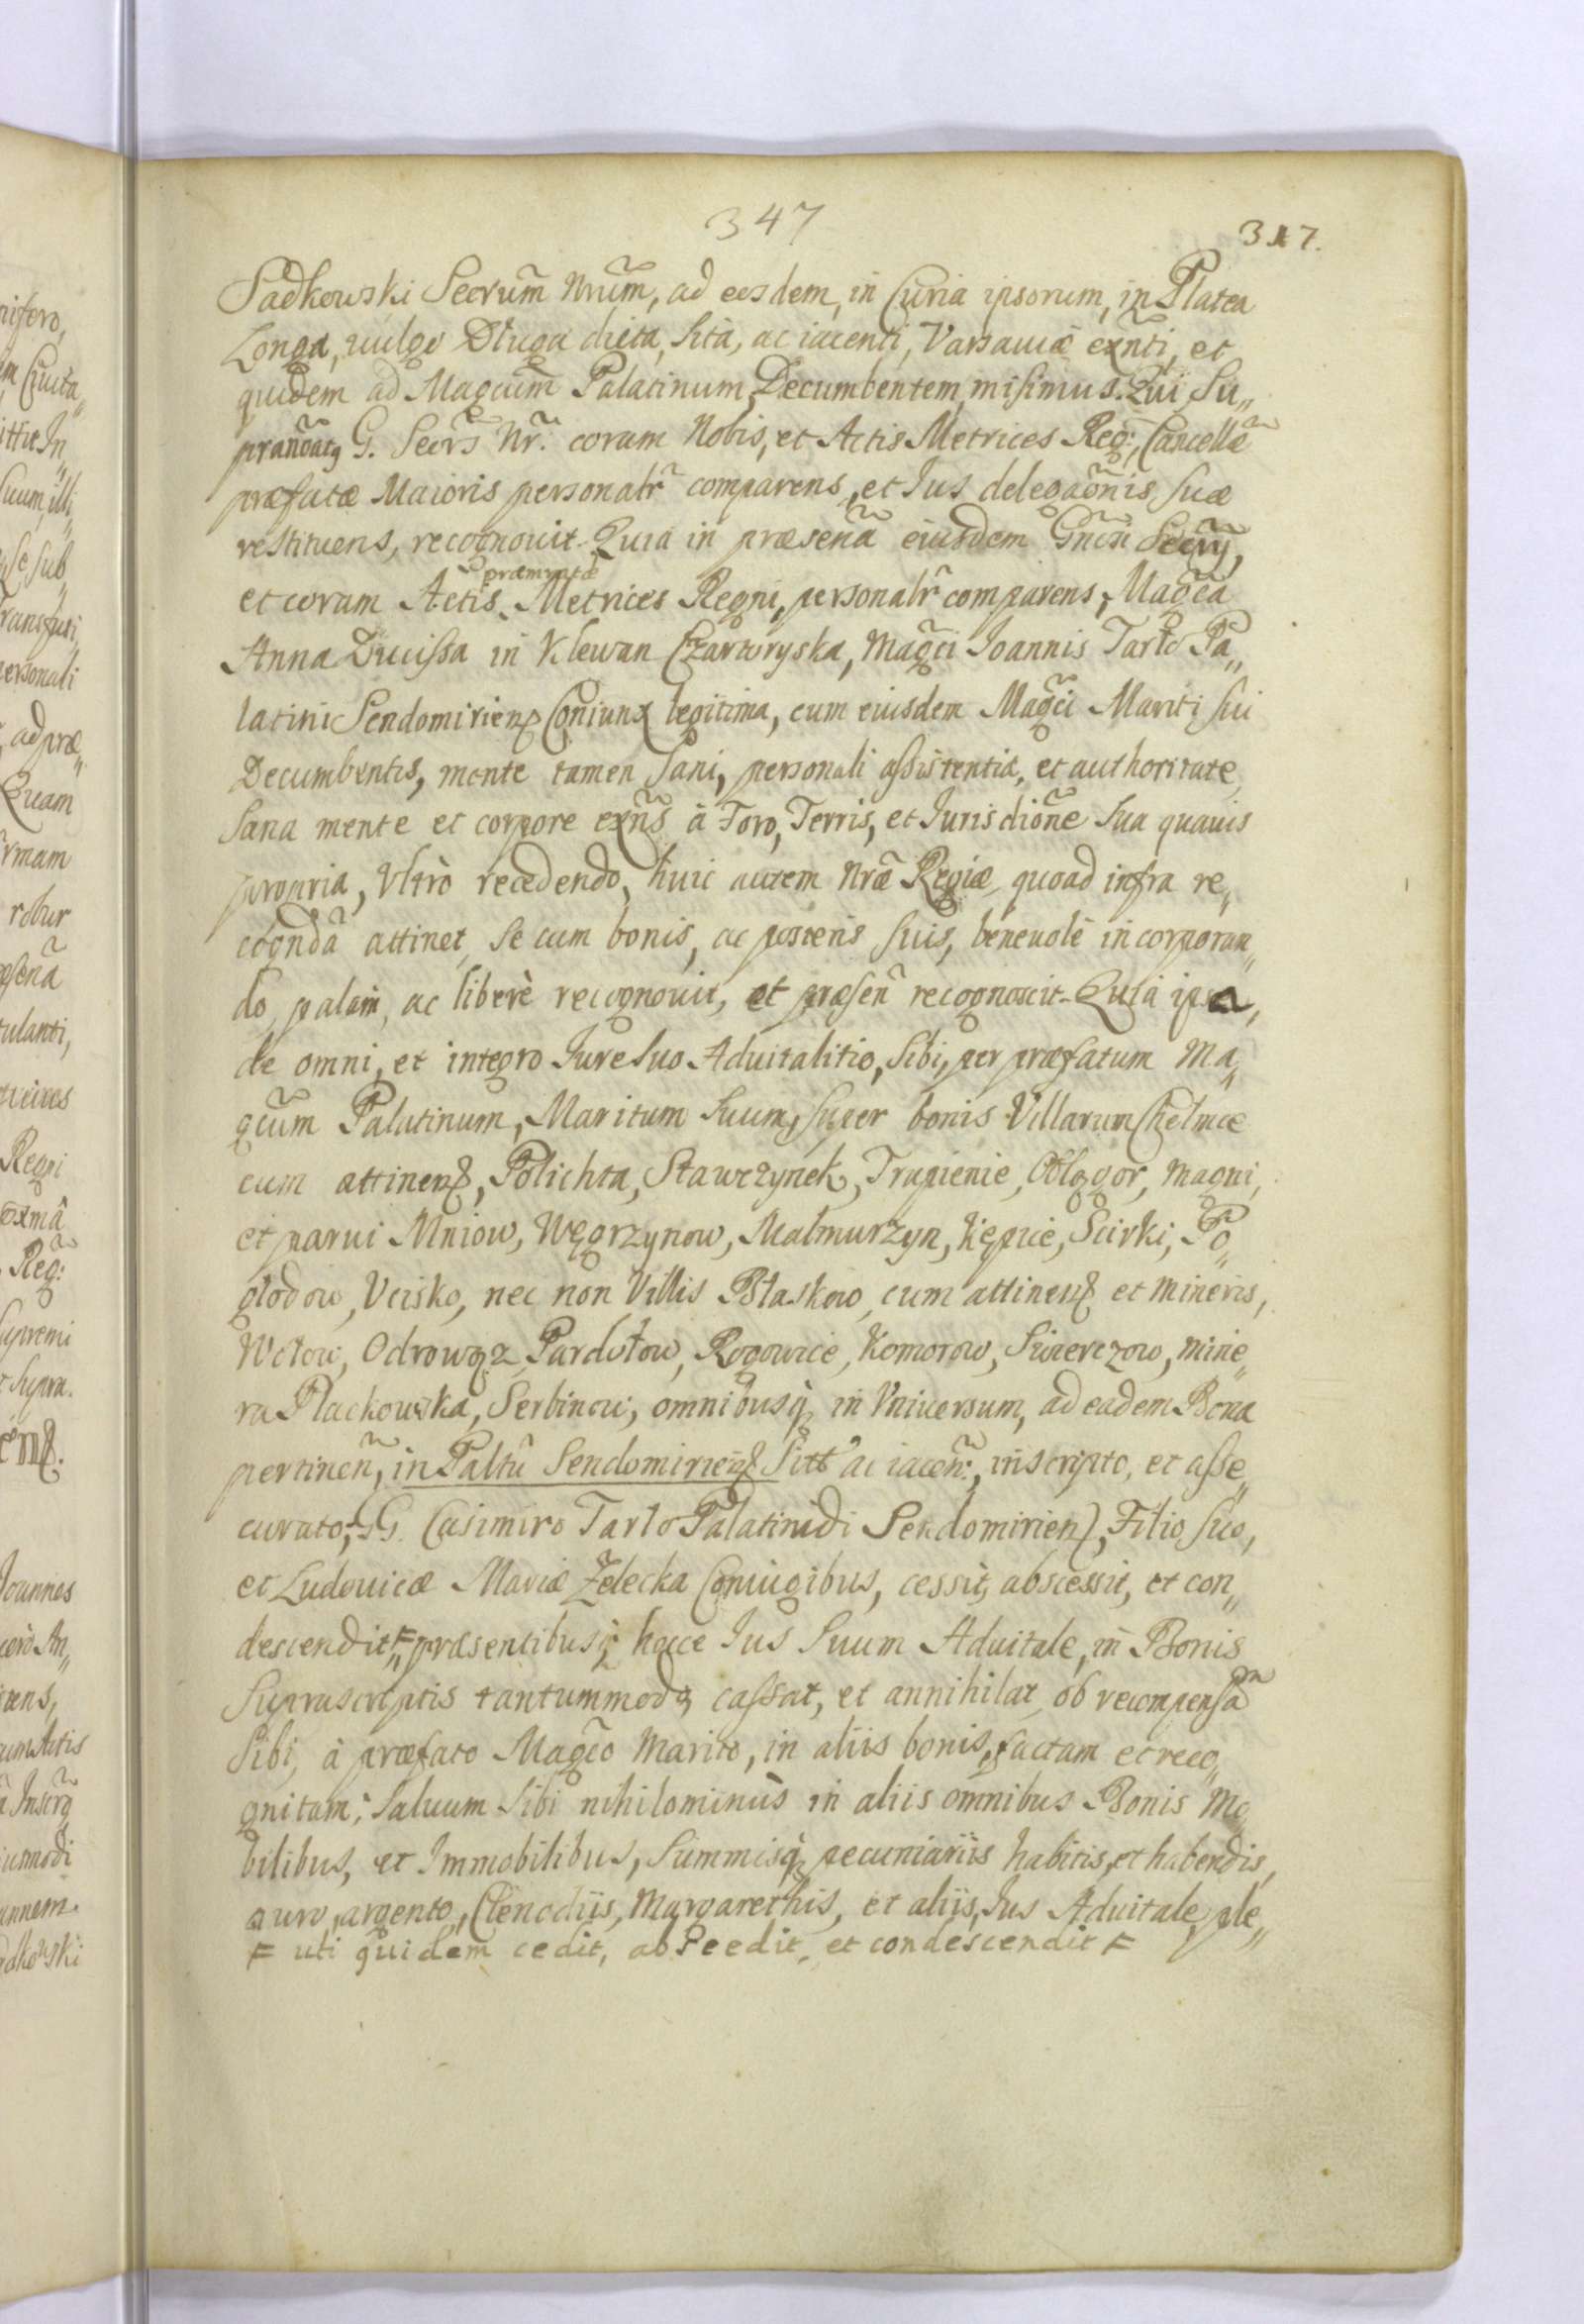 347
347.
Sadkowski Secrum̃ Nrum̃, ad eosdem, in Curia ipsorum, in Platea
Longa, vulgo Długa dicta, sita, ac iacenti, Varsaviæ exñti, et
quidem ad Magcum̃ Palatinum, Decumbentem, misimus. Qui Su„
prañoatq G. Secrs̃ Nr̃. coram Nobis, et Actis Metrices Reg:, Cancellæ̃
præfatæ Maioris personalr̃ comparens, et Jus delegaõnis suæ
restituens, recognovit. Quia in præsenã eiusdem Gñsi Secrỹ,
præmratæ
et coram Actis Metrices Regni, personalr̃ comparens, Magc̃a
Anna Ducissa in Klewan Czartoryska, Magc̃i Joannis Tarło Pa„
latini Sendomirienẜ Coniunx legitima, cum eiusdem Magc̃i Mariti sui
Decumbentis, mente tamen sani, personali assistentia, et authoritate,
sana mente et corpore exñs à Foro, Terris, et Jurisdiõne sua quavis
propria, Vltrò recedendo, huic autem Nræ̃ Regiæ, quoad infra re„
cogndã attinet, se cum bonis, ac posteris suis, benevolè incorporan„
do, palam, ac liberè recognovit, et præsenr̃ recognoscit. Quia ipsa,
de omni, et integro Jure suo Advitalitio, sibi, per præfatum Ma„
gcum̃ Palatinum, Maritum suum, super bonis Villarum Chełmce
cum attinenẜ, Polichta, Stawrzynek, Trupienie, Oblęgor, magni,
et parvi Mniow, Węgrzynow, Malmurzyn, Kępcie, Scirki, Po„
głodow, Ucisko, nec non Villis Błaskow, cum attinenẜ et mineris,
Wołow, Odrowąz, Pardołow, Rogowice, Komorow, Swierczow, mine„
ra Płackowska, Serbinow, omnibusq in Vniversum, ad eadem Bona
pertineñ, in Paltũ Sendomirienẜ Sitt' ac iaceñ:, inscripto, et asse„
curato, G. Casimiro Tarło Palatinidi Sendomirienẜ, Filio suo,
et Ludovicæ Mariæ Zelecka Coniugibus, cessit, abscessit, et con„
descendit, ⌿ præsentibusq; hocce Jus Suum Advitale, in Bonis
Suprascriptis tantummodo, cassat, et annihilat, ob recompensam̃
sibi, à præfato Magc̃o Marito, in aliis bonis, factam et reco„
gnitam; salvum sibi nihilominùs in aliis omnibus Bonis Mo„
bilibus, et Immobilibus, Summisq pecuniariis habitis, et habendis,
auro, argento, Clenodiis, Margarethis, et aliis, Jus Advitale, ple„
⌿ uti quidem cedit, abscedit, et condescendit ⌿